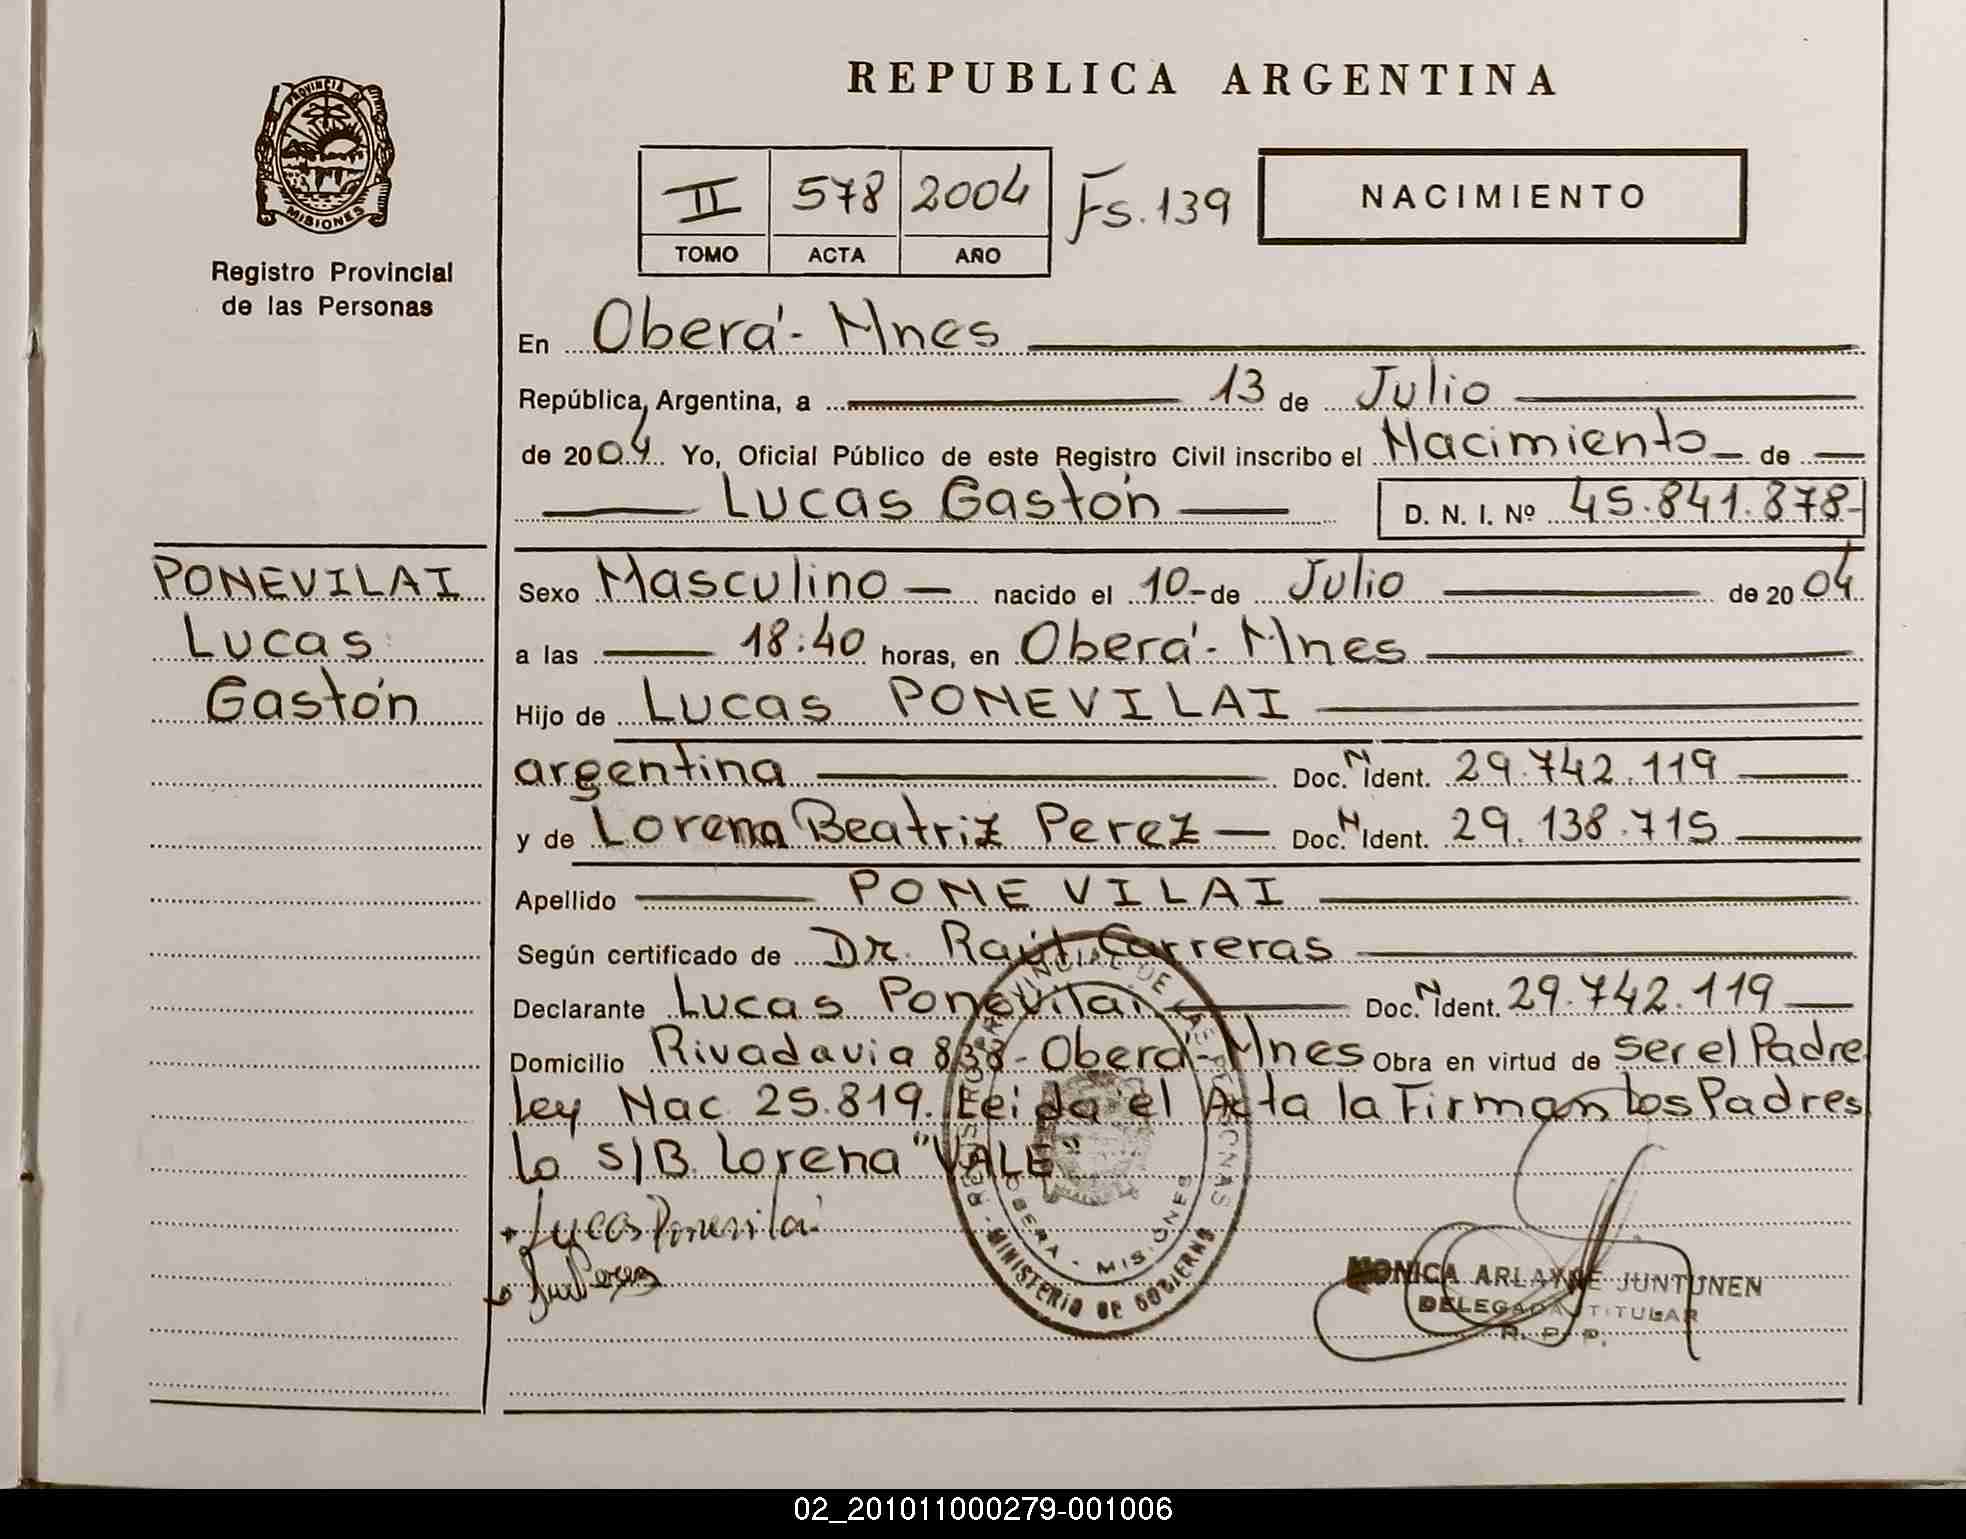 PROVINCIA DE
MISIONES
Registro Provincial
de las Personas
REPUBLICA ARGENTINA
II 578 2004 Fs. 139
TOMO ACTA AÑO
NACIMIENTO
En Oberá - Mnes
República Argentina, a 13 de Julio
de 2004 Yo, Oficial Público de este Registro Civil inscribo el Nacimiento de
Lucas Gastón D. N. I. Nº 45.841.878-
PONEVILAI
Lucas
Gastón
Sexo Masculino nacido el 10 - de Julio de 2004
a las 18:40 horas, en Oberá - Mnes
Hijo de Lucas PONEVILAI
argentina Doc. N Ident. 29.742.119
y de Lorena Beatriz Perez Doc. N Ident. 29.138.715
Apellido PONEVILAI
Según certificado de Dr. Raúl Carreras
Declarante Lucas Ponevilai Doc. N Ident. 29.742.119
Domicilio Rivadavia 838 - Oberá - Mnes Obra en virtud de ser el Padre
Ley Nac. 25.819. Leida el Acta la Firman los Padres
Lo S/B. Lorena "VALE"
Lucas Ponevilai
Perez
REGISTRO PROVINCIAL DE LAS PERSONAS
OBERA - MISIONES
MINISTERIO DE GOBIERNO
MONICA ARLAYNE JUNTUNEN
DELEGADA TITULAR
R. P. P.
02_201011000279-001006